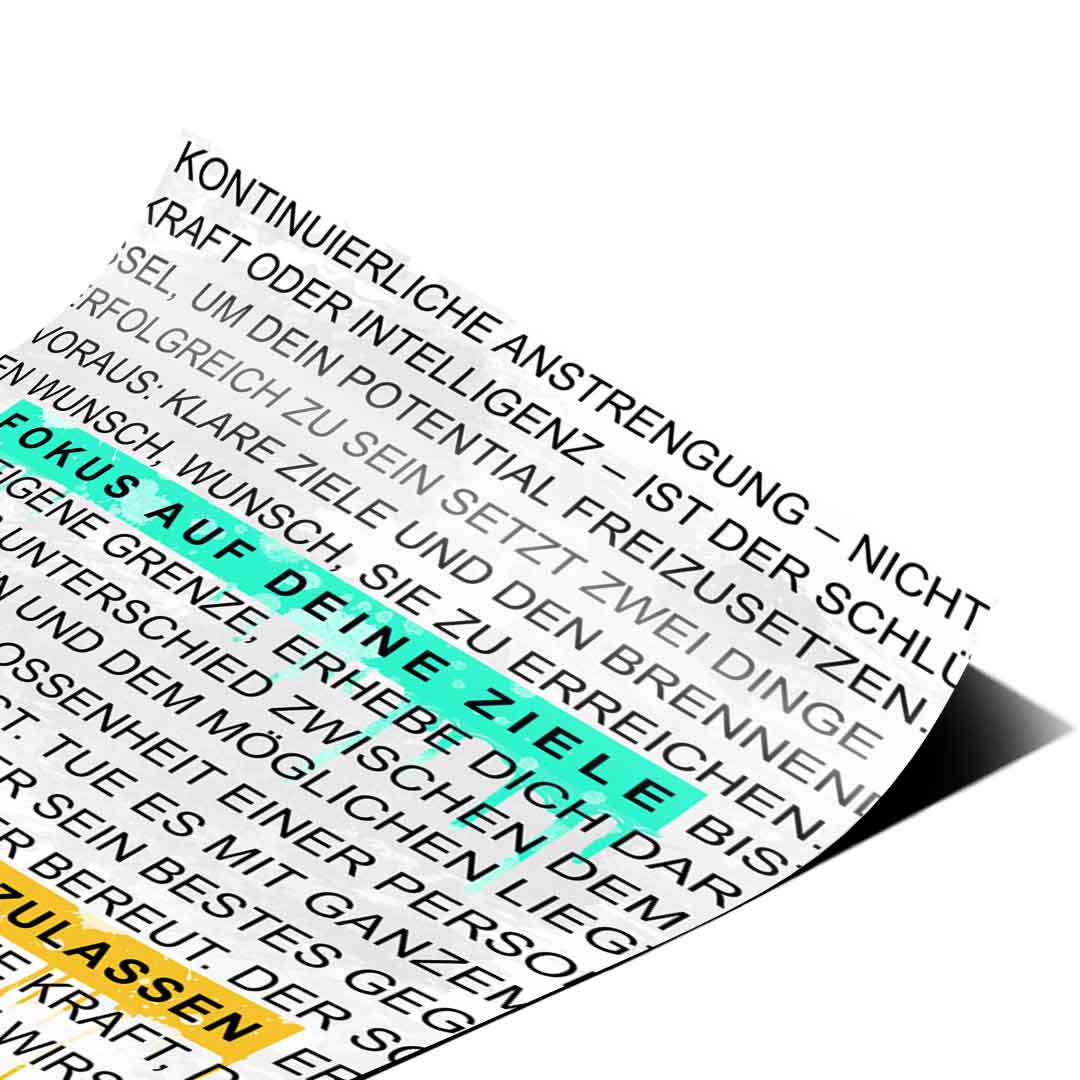 KONTINUIERLICHE ANSTRENGUNG – NICHT
KRAFT ODER INTELLIGENZ – IST DER SCHLÜ
SSEL, UM DEIN POTENTIAL FREIZUSETZEN.
ERFOLGREICH ZU SEIN SETZT ZWEI DINGE
VORAUS: KLARE ZIELE UND DEN BRENNEND
EN WUNSCH, WUNSCH, SIE ZU ERREICHEN.
FOKUS AUF DEINE ZIELE BIS
EIGENE GRENZE, ERHEBE DICH DAR
UNTERSCHIED ZWISCHEN DEM
N UND DEM MÖGLICHEN LIEGT
OSSENHEIT EINER PERSO
ST. TUE ES MIT GANZEM
R SEIN BESTES GEG
R BEREUT. DER SC
ZULASSEN ER
E KRAFT, D
WIRS